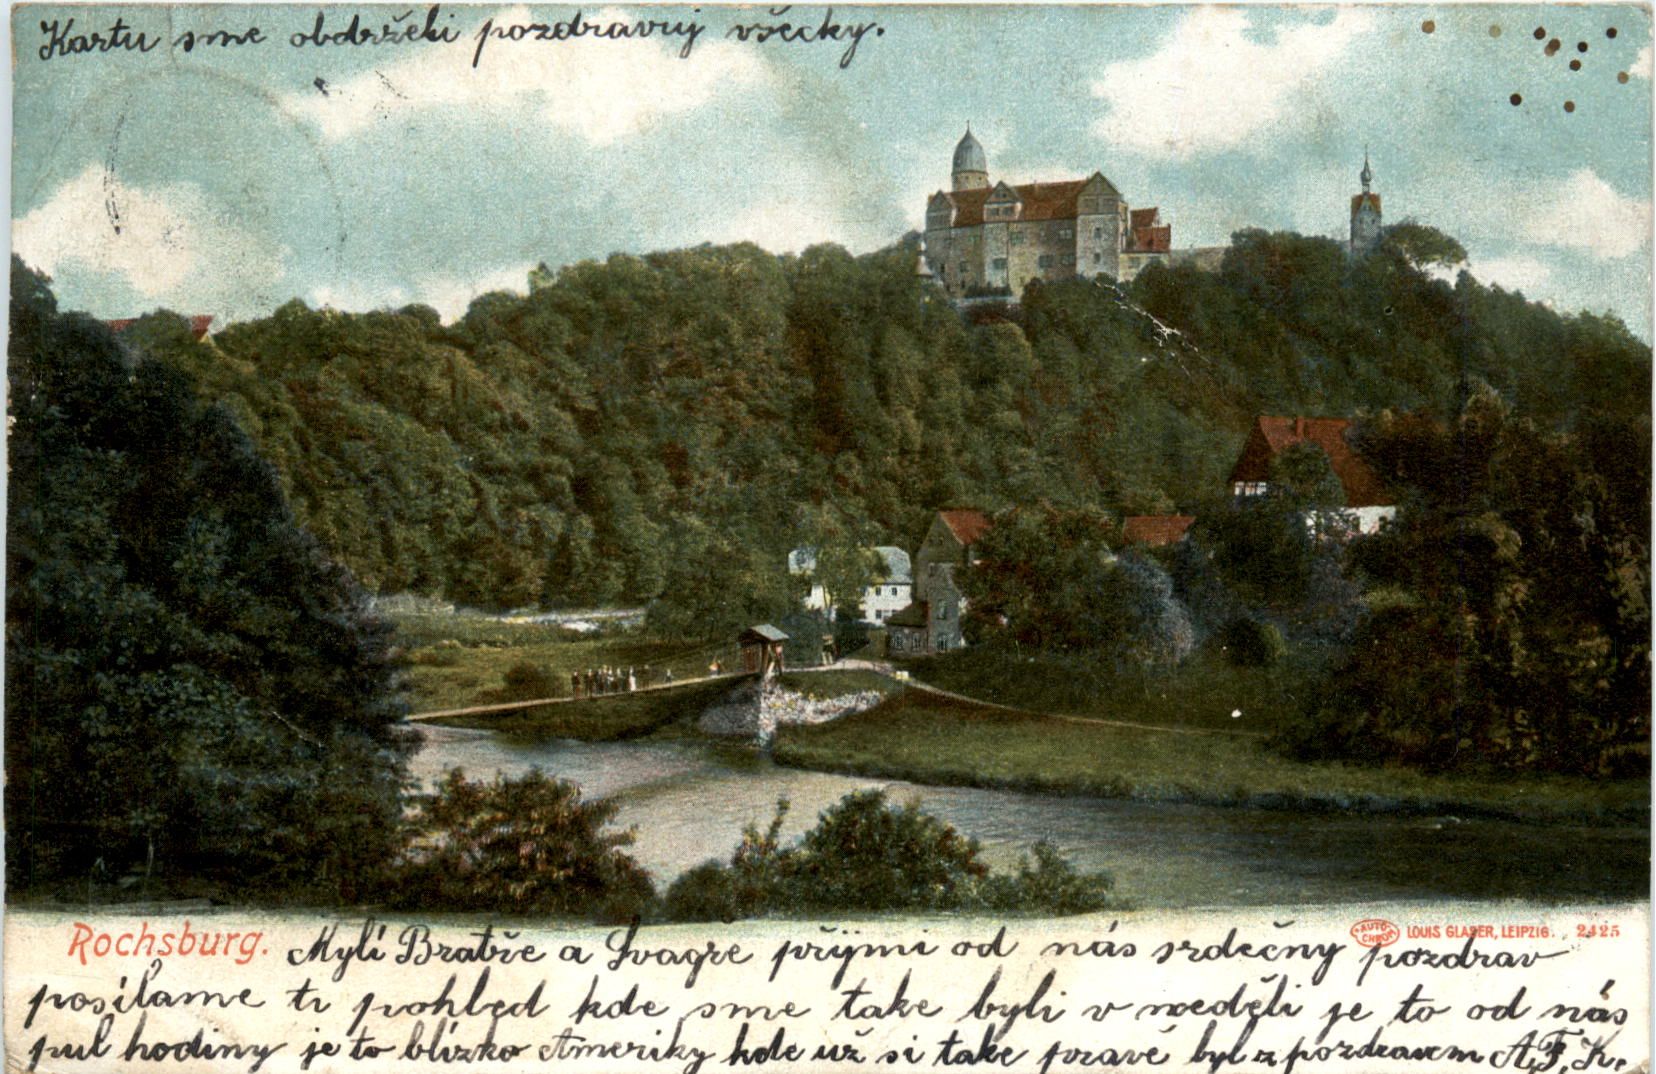 Kartu sme obdrželi pozdravuj všecky.
Rochsburg.
AUTO CHROM LOUIS GLASER, LEIPZIG. 2425
Mylí Bratře a Svagře přijmi od nás srdečny pozdrav
posílame ti pohlęd kde sme take byli v neděli je to od nás
pul hodiny je to blízko Ameriky kde už si take pravě byl z pozdravem A.F.K.